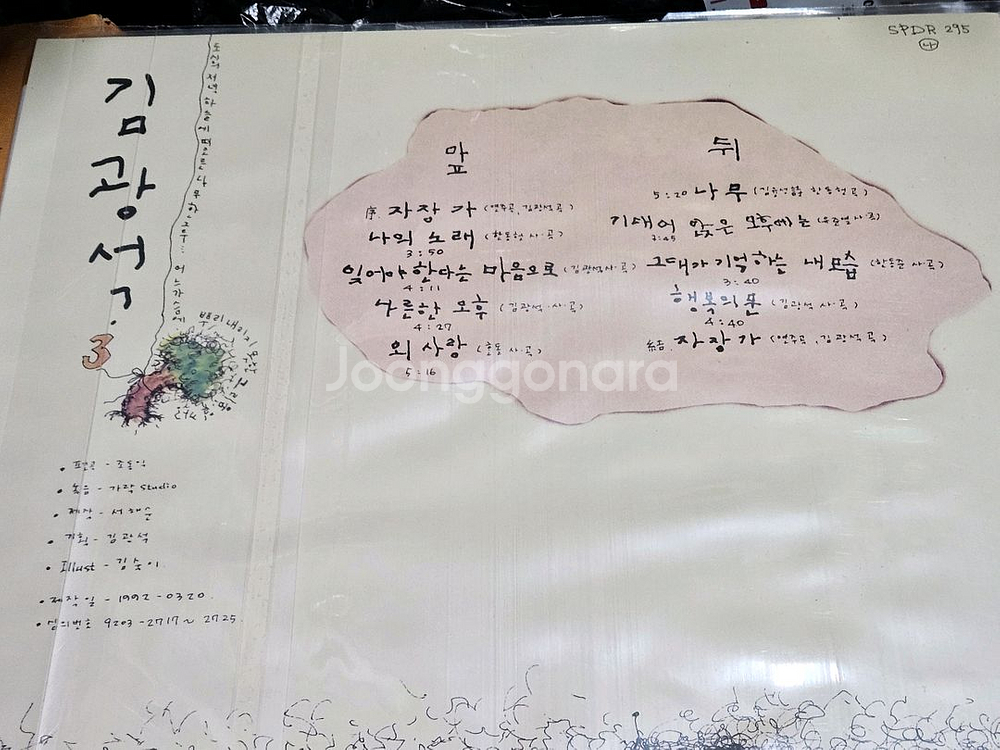 SPDR 295
나
김광석
3
앞
序. 자장가 (연주곡, 김광석 곡)
나의 노래 (한동헌 사·곡)
3:50
잊어야 한다는 마음으로 (김광석 사·곡)
4:11
나른한 오후 (김광석·사곡)
4:27
외사랑 (한동헌 사·곡)
5:16
뒤
5:20 나무 (한동헌 곡)
기대어 앉은 오후에는
3:45
그대가 기억하는 내 모습 (한동준 사·곡)
3:40
행복의 문 (김광석 사·곡)
4:40
結. 자장가 (연주곡, 김광석 곡)
• 편곡 - 조동익
• 녹음 - 가락 Studio
• 제작 - 서해순
• 기획 - 김광석
• Illust - 김숙이.
• 제작일 - 1992-0320.
• 심의번호 9203-2717~2725.
Joonggonara